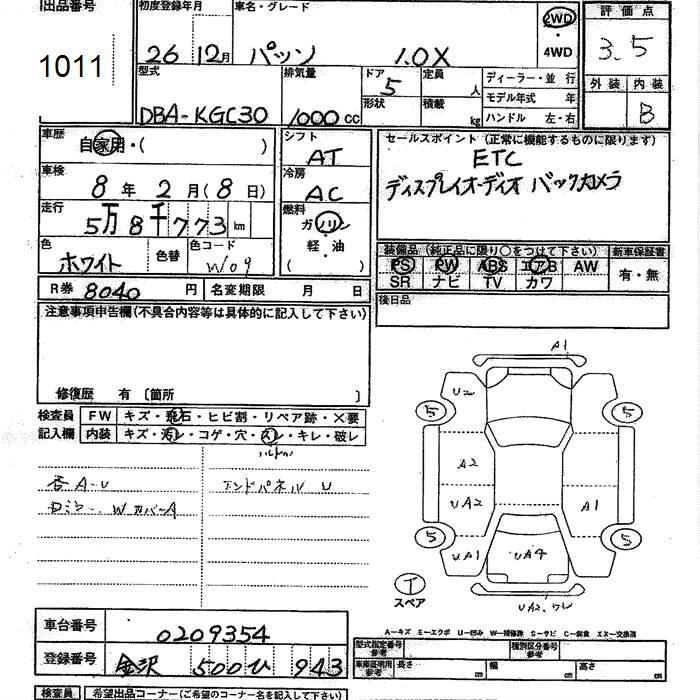 出品番号 初度登録年月 車名・グレード 評価点
1011 26 12月 パッソ 1.0X 2WD・4WD 3.5
型式 排気量 ドア 定員 ディーラー・並 行 外装 内装
DBA-KGC30 1000cc 5 人 モデル年式 年 B
形状 積載 kg ハンドル 左・右
車歴 シフト セールスポイント (正常に機能するものに限ります)
自家用・( ) AT ETC
車検 冷房 ディスプレイオーディオ バックカメラ
8年 2月 (8日) AC
走行 燃料
5万8千773km ガソリン
色 色替 色コード 軽・油 装備品 (純正品に限り○をつけて下さい) 新車保証書
ホワイト W09 ( ) PS PW ABS エアB AW 有・無
SR ナビ TV カワ
R券 8040円 名変期限 月 日 後日品
注意事項申告欄(不具合内容等は具体的に記入して下さい)
修復歴 有 〔箇所 〕
検査員 FW キズ・飛石・ヒビ割・リペア跡・×要
記入欄 内装 キズ・汚レ・コゲ・穴・スレ・キレ・破レ
A1
U2
5 5
A2
UA2 A1
5 5
UA1 UA4
T
スペア
各A-U エンドパネル U
A-キズ E-エクボ U-凹み W-補修跡 S-サビ C-腐食 XX-交換済
車台番号 0209354
登録番号 金沢 500 ひ 943
型式指定番号 参考 種別区分番号 参考
車庫証明用 参考 長さ cm 幅 cm 高さ cm
検査員 希望出品コーナー(ご希望のコーナー名を記入して下さい)